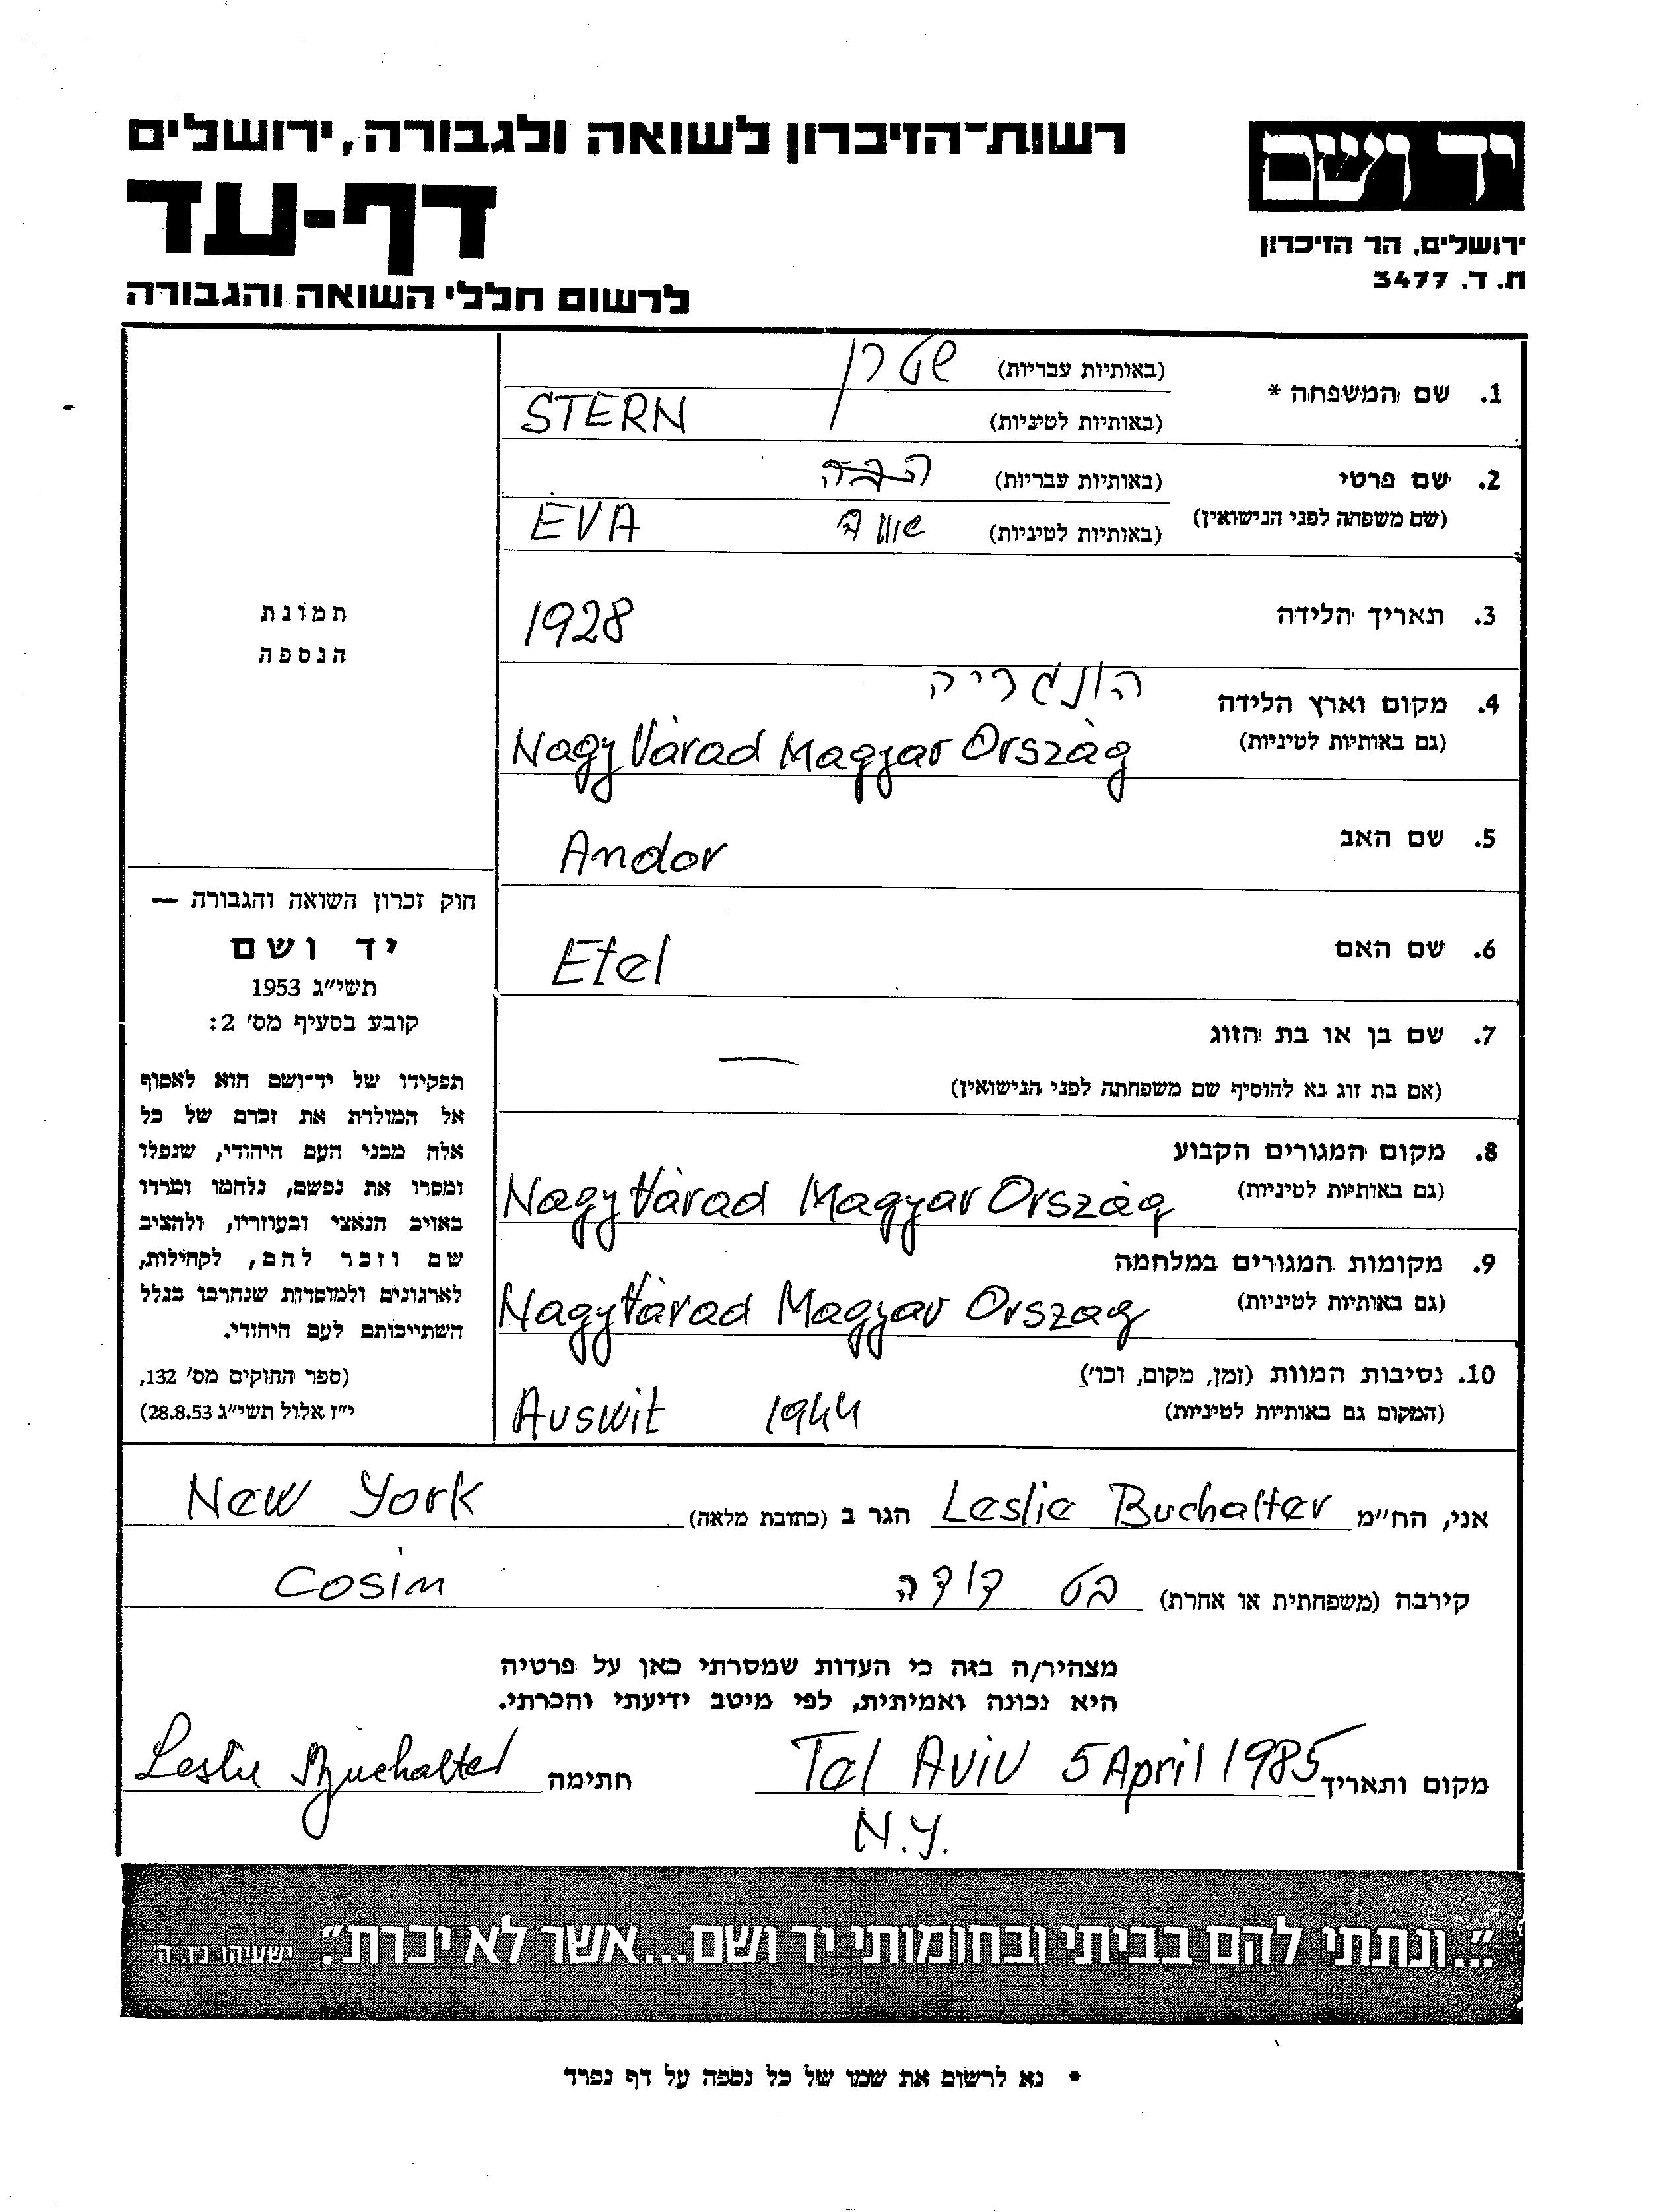 רשות-הזיכרון לשואה ולגבורה, ירושלים
דף-עד
לרשום חללי השואה והגבורה
יד ושם
ירושלים, הר הזיכרון
ת. ד. 3477
1. שם המשפחה *
(באותיות עבריות) שטרן
(באותיות לטיניות) STERN
2. שם פרטי
(שם משפחה לפני הנישואין)
(באותיות עבריות)
(באותיות לטיניות) EVA
3. תאריך הלידה 1928
הונגריה
4. מקום וארץ הלידה
(גם באותיות לטיניות) Nagy Várad Magyar Ország
5. שם האב Andor
6. שם האם Etel
7. שם בן או בת הזוג —
(אם בת זוג נא להוסיף שם משפחתה לפני הנישואין)
8. מקום המגורים הקבוע
(גם באותיות לטיניות) Nagy Várad Magyar Ország
9. מקומות המגורים במלחמה
(גם באותיות לטיניות) Nagy Várad Magyar Orszag
10. נסיבות המוות (זמן, מקום, וכו')
(המקום גם באותיות לטיניות) Auswit 1944
תמונת
הנספה
חוק זכרון השואה והגבורה —
יד ושם
תשי"ג 1953
קובע בסעיף מס' 2:
תפקידו של יד-ושם הוא לאסוף
אל המולדת את זכרם של כל
אלה מבני העם היהודי, שנפלו
ומסרו את נפשם, נלחמו ומרדו
באויב הנאצי ובעוזריו, ולהציב
שם וזכר להם, לקהילות,
לארגונים ולמוסדות שנחרבו בגלל
השתייכותם לעם היהודי.
(ספר החוקים מס' 132,
י"ז אלול תשי"ג 28.8.53)
אני, הח"מ Leslie Buchalter הגר ב (כתובת מלאה) New York
קירבה (משפחתית או אחרת) דודה Cosin
מצהיר/ה בזה כי העדות שמסרתי כאן על פרטיה
היא נכונה ואמיתית, לפי מיטב ידיעתי והכרתי.
מקום ותאריך Tel Aviv 5 April 1985 חתימה Leslie Buchalter
N.Y.
"...ונתתי להם בביתי ובחומותי יד ושם...אשר לא יכרת". ישעיהו נו, ה
* נא לרשום את שמו של כל נספה על דף נפרד